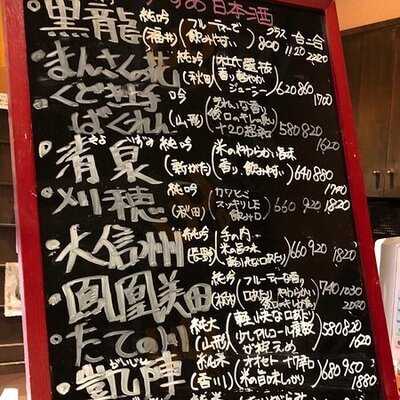 すめ 日本酒
グラス 一合 二合
黒龍 純吟 (福井) フルーティーで 飲みやすい 800 1120 2220
まんさくの花 純吟 (秋田) 香り 軽やか ジューシー 620 860 1700
くどき上手 ばくれん 吟 (山形) きれいな香り 後口のキレ +20 超辛口 580 820 1620
清泉 きよ いずみ 純吟 (新がた) 米のやわらかい旨味 香り、飲みやすい 640 880 1740
刈穂 純吟 (秋田) カワセミ スッキリした 飲み口 660 920 1820
大信州 純吟 (長野) 手の内 米の旨味 660 920 1820
鳳凰美田 純吟 フルーティーな香り 口あたり やわらかい 740 1030 2020
たての川 純大 (山形) 軽快な口あたり 少しアルコール 580 820 1620
凱陣 がいじん 純米 (香川) オオセト 米の旨味しっかり 680 950 1880